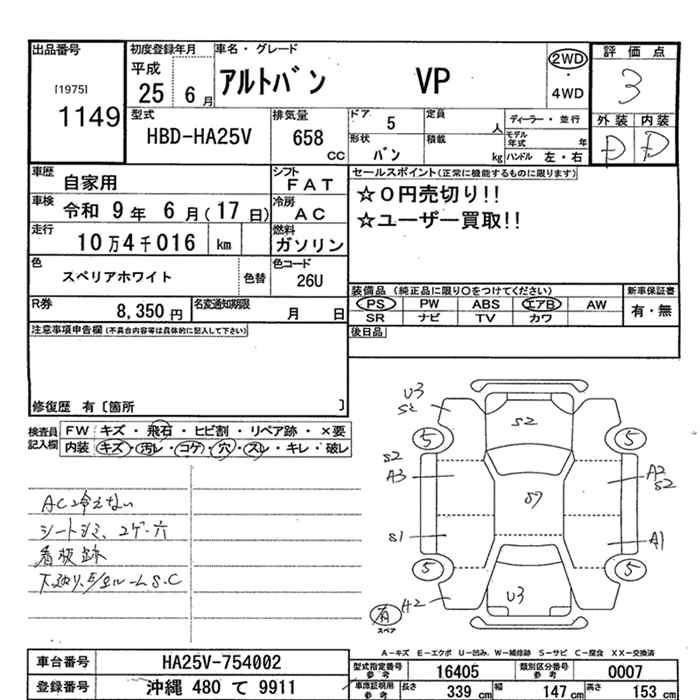 出品番号
[1975]
1149
初度登録年月
平成
25 6 月
車名・グレード
アルトバン VP
2WD
・
4WD
評価点
3
外装 内装
D D
型式
HBD-HA25V
排気量
658 CC
ドア 5
定員 人
ディーラー・並行
モデル年式 年
形状 バン
積載 kg
ハンドル 左・右
車歴 自家用
シフト FAT
車検 令和 9 年 6 月 (17 日)
冷房 AC
走行 10万4千016 km
燃料 ガソリン
色 スペリアホワイト 色替
色コード 26U
R券 8,350 円
名変通知期限 月 日
セールスポイント(正常に機能するものに限ります)
☆0円売切り!!
☆ユーザー買取!!
装備品 (純正品に限り○をつけてください)
新車保証書
PS PW ABS エアB AW
有・無
SR ナビ TV カワ
後日品
注意事項申告欄(不具合内容等は具体的に記入して下さい)
修復歴 有〔箇所 〕
検査員記入欄
FW キズ・飛石・ヒビ割・リペア跡・×要
内装 キズ・汚レ・コゲ・穴・スレ・キレ・破レ
AC冷えない
シートシミ、コゲ・穴
看板跡
U3
S2
S2
5 5
S2
A3
A2
S2
S7
S1
A1
5 5
A2
U3
有
スペア
A-キズ E-エクボ U-凹み、W-補修跡 S-サビ C-腐食 XX-交換済
車台番号 HA25V-754002
登録番号 沖縄 480 て 9911
型式指定番号 参考 16405
類別区分番号 参考 0007
車庫証明用 参考
長さ 339 cm
幅 147 cm
高さ 153 cm